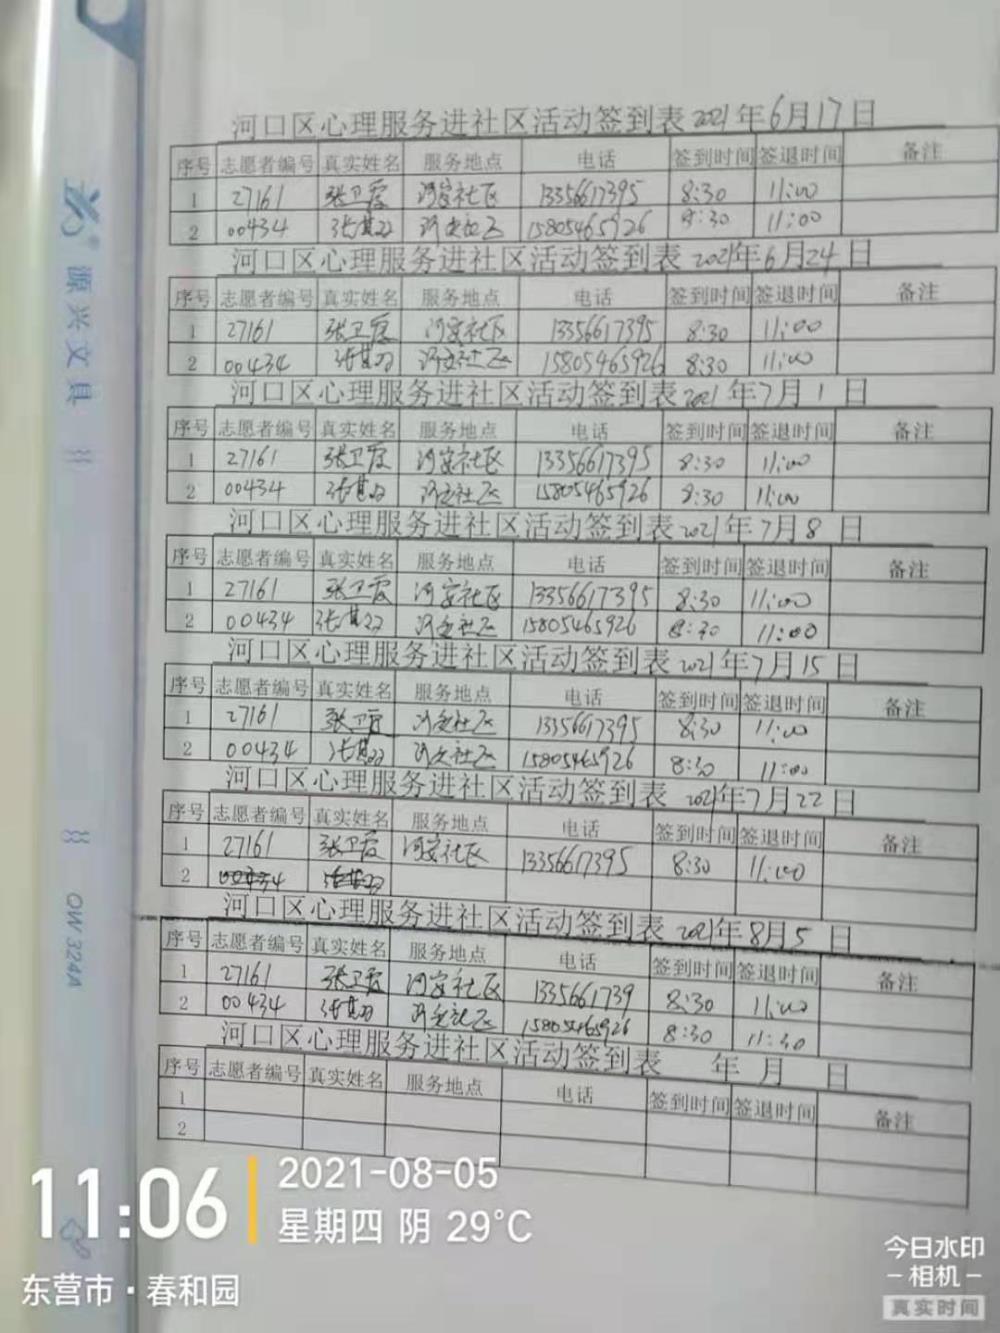 河口区心理服务进社区活动签到表 2021年6月17日
序号 志愿者编号 真实姓名 服务地点 电话 签到时间 签退时间 备注
1 27161 张卫霞 河安社区 13356617395 8:30 11:00
2 00434 15805465926 8:30 11:00
河口区心理服务进社区活动签到表 2021年6月24日
序号 志愿者编号 真实姓名 服务地点 电话 签到时间 签退时间 备注
1 27161 张卫霞 河安社区 13356617395 8:30 11:00
2 00434 河安社区 15805465926 8:30 11:00
河口区心理服务进社区活动签到表 2021年7月1日
序号 志愿者编号 真实姓名 服务地点 电话 签到时间 签退时间 备注
1 27161 张卫霞 河安社区 13356617395 8:30 11:00
2 00434 河安社区 15805465926 8:30 11:00
河口区心理服务进社区活动签到表 2021年7月8日
序号 志愿者编号 真实姓名 服务地点 电话 签到时间 签退时间 备注
1 27161 张卫霞 河安社区 13356617395 8:30 11:00
2 00434 河安社区 15805465926 8:30 11:00
河口区心理服务进社区活动签到表 2021年7月15日
序号 志愿者编号 真实姓名 服务地点 电话 签到时间 签退时间 备注
1 27161 张卫霞 河安社区 13356617395 8:30 11:00
2 00434 河安社区 15805465926 8:30 11:00
河口区心理服务进社区活动签到表 2021年7月22日
序号 志愿者编号 真实姓名 服务地点 电话 签到时间 签退时间 备注
1 27161 张卫霞 河安社区 13356617395 8:30 11:00
2 00434
河口区心理服务进社区活动签到表 2021年8月5日
序号 志愿者编号 真实姓名 服务地点 电话 签到时间 签退时间 备注
1 27161 张卫霞 河安社区 1335661739 8:30 11:00
2 00434 河安社区 15805465926 8:30 11:30
河口区心理服务进社区活动签到表 年 月 日
序号 志愿者编号 真实姓名 服务地点 电话 签到时间 签退时间 备注
1
2
源兴文具
QW324A
11:06
2021-08-05
星期四 阴 29°C
东营市·春和园
今日水印
-相机-
真实时间